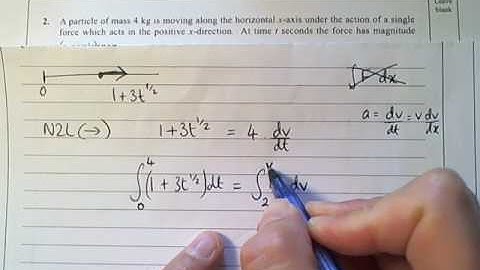 Leave
blank
2. A particle of mass 4 kg is moving along the horizontal x-axis under the action of a single
force which acts in the positive x-direction. At time t seconds the force has magnitude
0
1+3t^{1/2}
∫ F dx
a = dv/dt = v dv/dx
N2L(→) 1+3t^{1/2} = 4 dv/dt
∫_0^4 (1+3t^{1/2})dt = ∫_2^v dv